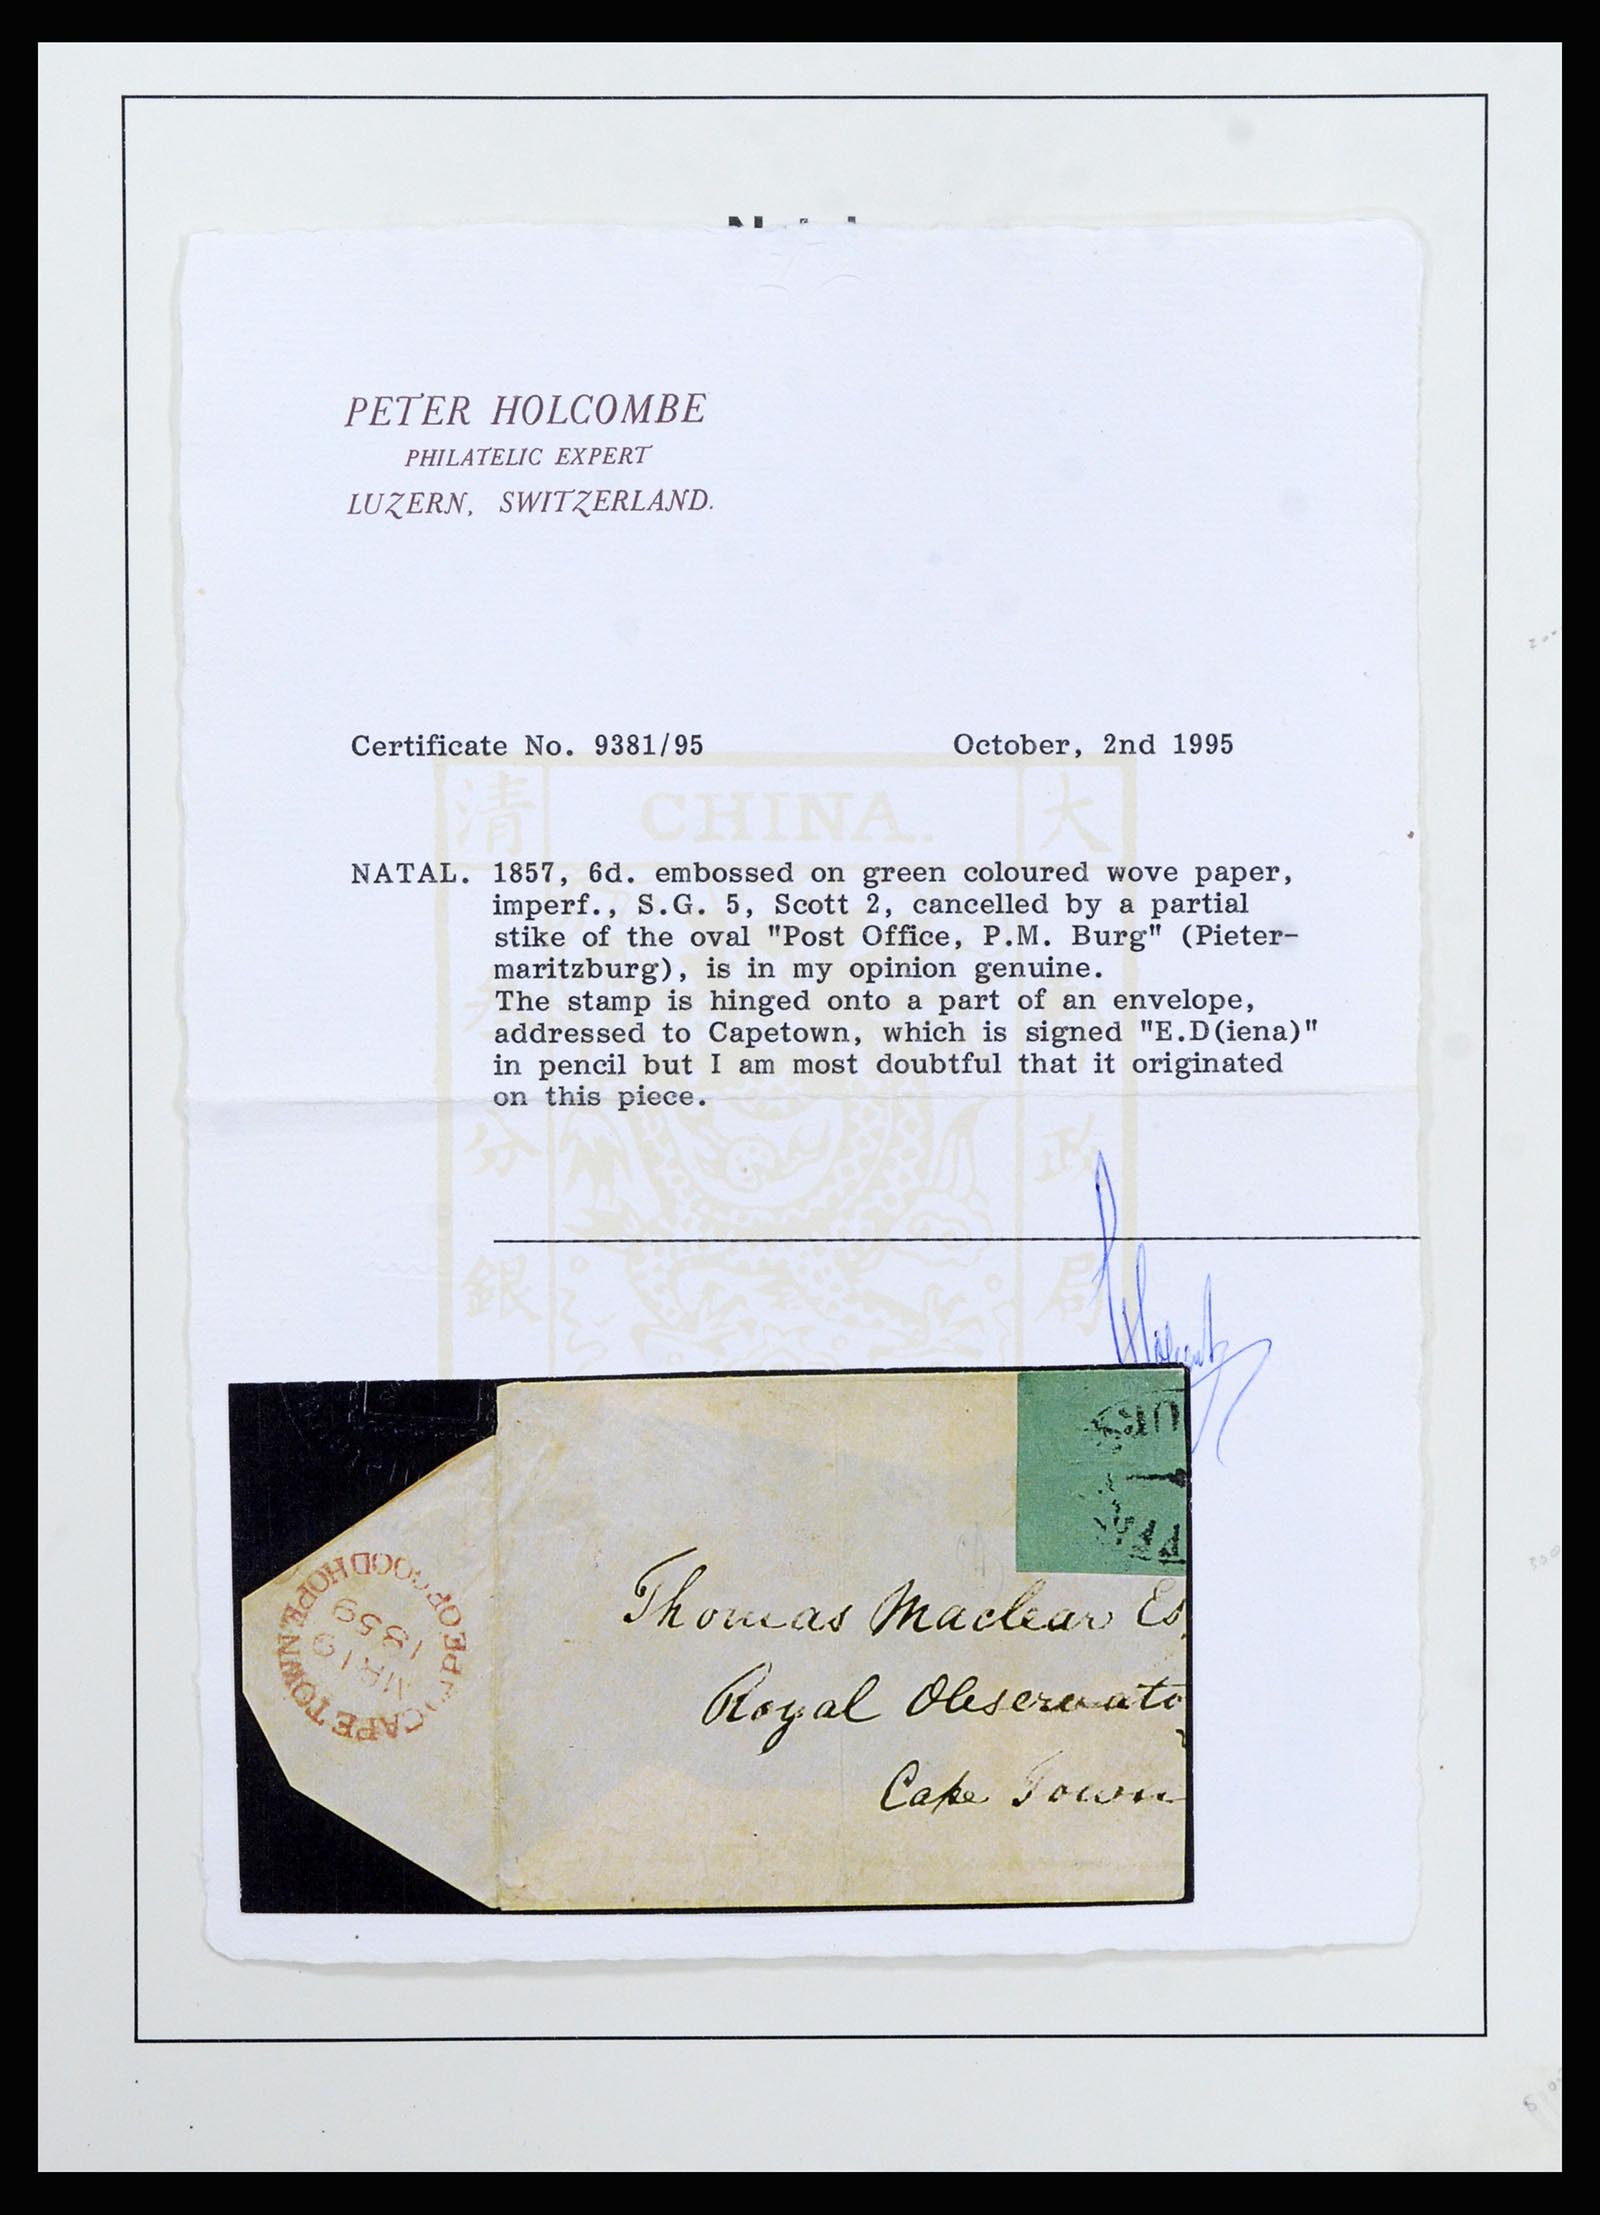 PETER HOLCOMBE
PHILATELIC EXPERT
LUZERN, SWITZERLAND.
Certificate No. 9381/95 October, 2nd 1995
清 CHINA. 大
NATAL. 1857, 6d. embossed on green coloured wove paper,
imperf., S.G. 5, Scott 2, cancelled by a partial
stike of the oval "Post Office, P.M. Burg" (Pieter-
maritzburg), is in my opinion genuine.
The stamp is hinged onto a part of an envelope,
addressed to Capetown, which is signed "E.D(iena)"
in pencil but I am most doubtful that it originated
on this piece.
分 政
銀 局
CAPE TOWN CAPE OF GOOD HOPE
MR 19
1859
Thomas Maclear Es
Royal Observato
Cape Town